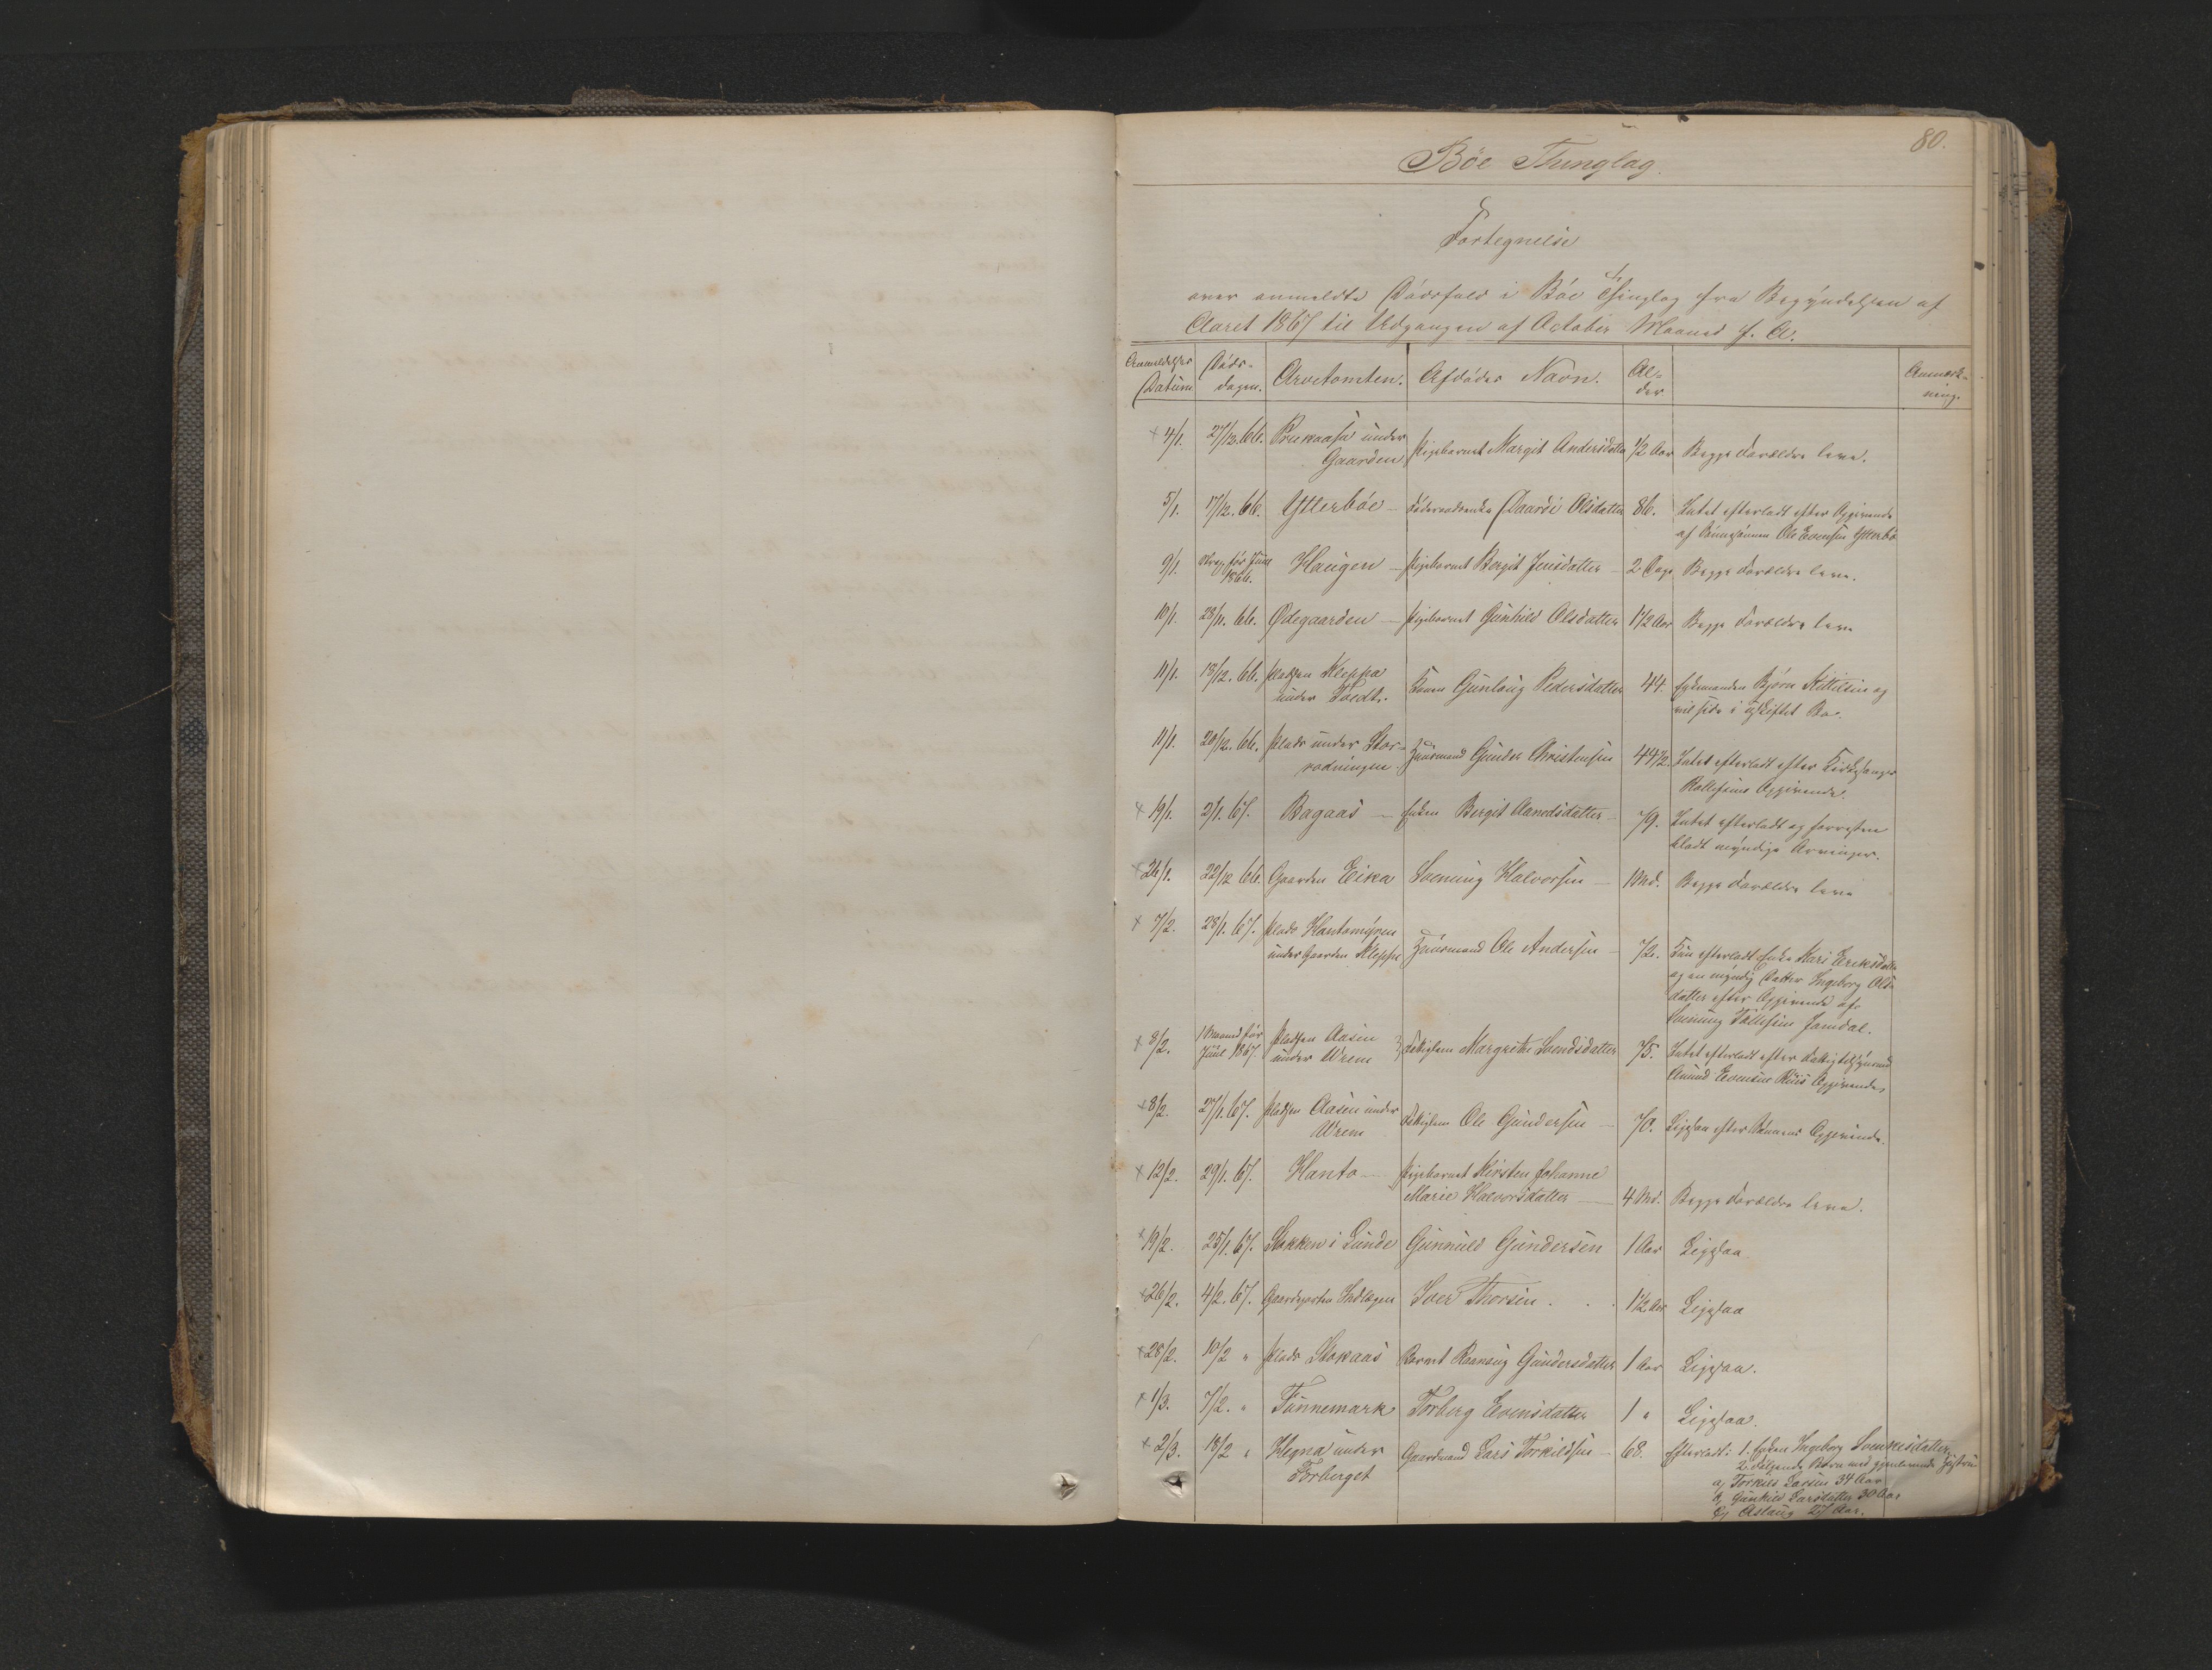 80.
Böe Thinglag.
Fortegnelse
over anmeldte Dödsfald i Böe Thinglag fra Begyndelsen af
Aaret 1867 til Udgangen af October Maaned f. A.
Anmeldelses Datum
Döds-dagen.
Arvetomten.
Afdödes Navn.
Al-der
Anmærk-ning.
4/1. 27/12. 66. under Pigebarnet Margit Andersdatter 1/2 Aar Begge Forældre leve.
Gaarden
5/1. 17/12. 66. Ytterböe - Olsdatter 86. Intet efterladt efter Opgivende
af Ole Evensen Ytterbö
9/1. för Juul Haugen - Pigebarnet Bergit Jensdatter - 2 Dage Begge Forældre leve.
1866.
10/1. 28/11. 66. Ødegaarden - Pigebarnet Gunhild Olsdatter 1 1/2 Aar Begge Forældre leve
11/1. 18/12. 66. Pladsen Kleppa Kone Gunlaug Pedersdatter 44. Björn Kittilsen og
under Tvedt. vil sidde i uskiftet Bo.
11/1. 20/12. 66. Plads under Stor- Huusmand Gunder Christensen 44 1/2. Intet efterladt efter Kirkesanger
rodningen. Opgivende.
19/1. 2/1. 67. Bagaas - Enken Bergit Aanedsdatter - 79. Intet efterladt og forresten
blodt myndige Arvinger.
26/1. 22/12 66. Gaarden Eika Svenung Halvorsen - 1 Md. Begge Forældre leve
7/2. 28/1. 67. Plads Hantomyren
under Gaarden Kleppe Huusmand Ole Andersen - 72. Kun efterladt Enke Kari Ericksdatter
og en myndig Datter Ingeborg Ols-
datter efter Opgivende af
Svenung Jamdal.
8/2. 1 Maaned för Pladsen Aasen Fattiglem Margrethe Svendsdatter 75. Intet efterladt efter
Juul 1867. under Wrem Amund Evensen Opgivende,
8/2. 27/1. 67. Pladsen Aasen under Fattiglem Ole Gundersen - 70. Ligesaa efter Opgivende.
Wrem
12/2. 29/1. 67. Hanto - Pigebarnet Kirsten Johanne
Marie Halvorsdatter - 4 Md. Begge Forældre leve.
19/2. 25/1. 67. Stokken i Lunde Gunnuld Gundersen 1 Aar Ligesaa
26/2. 4/2. 67. Iver Thorsen . . 1 1/2 Aar Ligesaa
28/2. 10/2 " Plads Stokaas Barnet Gundersdatter 1 Aar Ligesaa.
1/3. 7/2. " Tunnemark Torberg Evensdatter 1 " Ligesaa.
2/3. 18/2 " Hegna under Gaardmand Lars Torkildsen - 68. Efterladt: 1. Enken Ingeborg
Forberget 2. Følgende Börn med gjenlevende
a, Torkild Larsen 34 Aar
b, Gunhild Larsdatter 30 Aar
c, Aslaug 27 Aar.